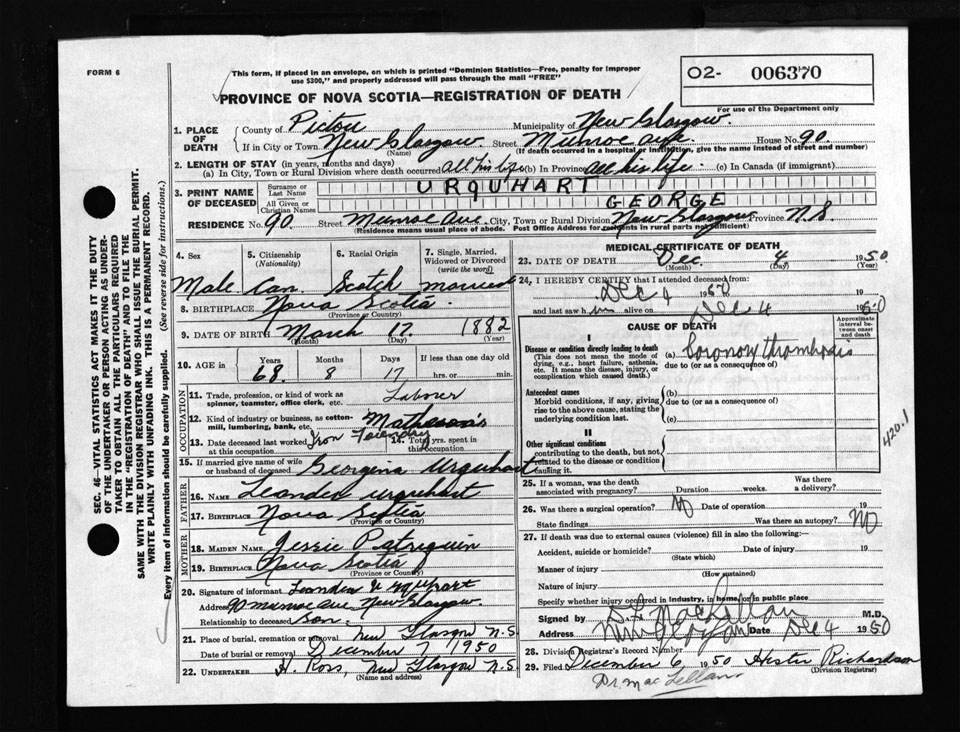 FORM 6
This form, if placed in an envelope, on which is printed "Dominion Statistics—Free, penalty for improper
use $300," and properly addressed will pass through the mail "FREE"
PROVINCE OF NOVA SCOTIA—REGISTRATION OF DEATH
02- 006370
For use of the Department only
1. PLACE OF DEATH County of Pictou Municipality of New Glasgow.
If in City or Town New Glasgow. Street Munroe Ave House No. 90
(Name) (If death occurred in a hospital or institution, give the name instead of street and number)
2. LENGTH OF STAY (in years, months and days)
(a) In City, Town or Rural Division where death occurred all his life (b) In Province all his life (c) In Canada (if immigrant)
3. PRINT NAME OF DECEASED Surname or Last Name URQUHART
All Given or Christian Names GEORGE
RESIDENCE No. 90 Street Munroe Ave. City, Town or Rural Division New Glasgow Province N.S.
(Residence means usual place of abode. Post Office Address for residents in rural parts not sufficient)
4. Sex 5. Citizenship (Nationality) 6. Racial Origin 7. Single, Married, Widowed or Divorced (write the word)
Male Can. Scotch married
8. BIRTHPLACE Nova Scotia.
(Province or Country)
9. DATE OF BIRTH March 17. 1882
(Month) (Day) (Year)
10. AGE in Years Months Days If less than one day old
68. 8 17 hrs. or min.
OCCUPATION
11. Trade, profession or kind of work as spinner, teamster, office clerk, etc. Laborer
12. Kind of industry or business, as cotton-mill, lumbering, bank, etc. Matheson's
Iron Foundry
13. Date deceased last worked at this occupation 14. Total yrs. spent in this occupation
15. If married give name of wife or husband of deceased Georgina Urquhart
FATHER
16. NAME Leander Urquhart
17. BIRTHPLACE Nova Scotia
(Province or Country)
MOTHER
18. MAIDEN NAME Jessie Patriquin
19. BIRTHPLACE Nova Scotia
(Province or Country)
20. Signature of informant Leander Urquhart
Address 90 Munroe Ave. New Glasgow.
Relationship to deceased Son.
21. Place of burial, cremation or removal New Glasgow N.S.
Date of burial or removal December 7 1950
22. UNDERTAKER H. Ross, New Glasgow N.S.
(Name and address)
MEDICAL CERTIFICATE OF DEATH
23. DATE OF DEATH Dec. 4 1950
(Month) (Day) (Year)
24. I HEREBY CERTIFY that I attended deceased from:
Dec 4 1950
and last saw him alive on Dec 4 1950
CAUSE OF DEATH
Approximate interval between onset and death
I
Disease or condition directly leading to death (a) Coronary thrombosis
(This does not mean the mode of dying, e.g., heart failure, asthenia, etc. It means the disease, injury, or complication which caused death.)
due to (or as a consequence of)
Antecedent causes (b)
Morbid conditions, if any, giving rise to the above cause, stating the underlying condition last.
due to (or as a consequence of)
(c)
II
Other significant conditions
contributing to the death, but not related to the disease or condition causing it.
420.1
25. If a woman, was the death associated with pregnancy? Duration weeks. Was there a delivery?
26. Was there a surgical operation? No Date of operation 19
State findings Was there an autopsy? No
27. If death was due to external causes (violence) fill in also the following:—
Accident, suicide or homicide? Date of injury 19
(State which)
Manner of injury
(How sustained)
Nature of injury
Specify whether injury occurred in industry, in home, or in public place
Signed by MacLellan M.D.
Address New Glasgow Date Dec 4 1950
28. Division Registrar's Record Number
29. Filed December 6, 1950 Hester Richardson
(Division Registrar)
Dr. MacLellan
SEC. 46—VITAL STATISTICS ACT MAKES IT THE DUTY
OF THE UNDERTAKER OR PERSON ACTING AS UNDER-
TAKER TO OBTAIN ALL THE PARTICULARS REQUIRED
IN THE "REGISTRATION OF DEATH" AND TO FILE THE
SAME WITH THE DIVISION REGISTRAR WHO SHALL ISSUE THE BURIAL PERMIT.
WRITE PLAINLY WITH UNFADING INK. THIS IS A PERMANENT RECORD.
Every item of information should be carefully supplied. (See reverse side for instructions.)